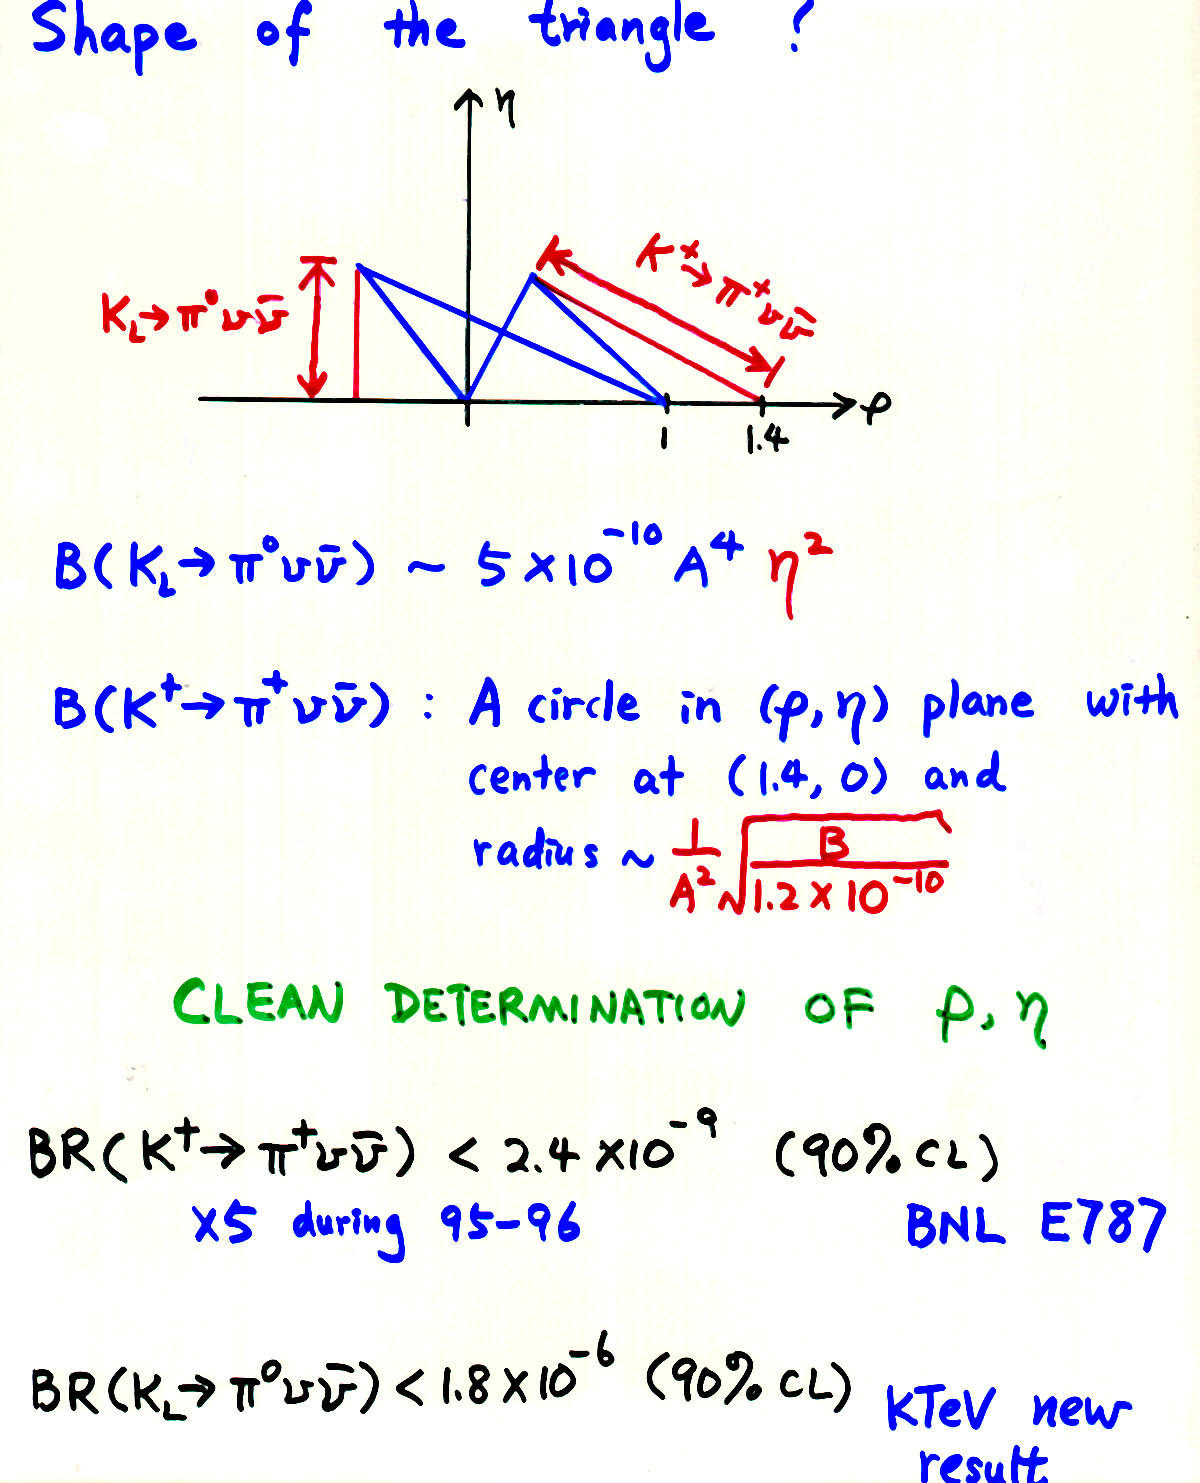 Shape of the triangle ?
η
K⁺→π⁺νν̄
K_L→π⁰νν̄
ρ
1 1.4
B(K_L→π⁰νν̄) ~ 5×10⁻¹⁰ A⁴ η²
B(K⁺→π⁺νν̄) : A circle in (ρ,η) plane with
center at (1.4, 0) and
radius ~ 1/A² √(B/1.2×10⁻¹⁰)
CLEAN DETERMINATION OF ρ, η
BR(K⁺→π⁺νν̄) < 2.4 ×10⁻⁹ (90% CL)
×5 during 95-96 BNL E787
BR(K_L→π⁰νν̄) < 1.8×10⁻⁶ (90% CL) KTeV new
result